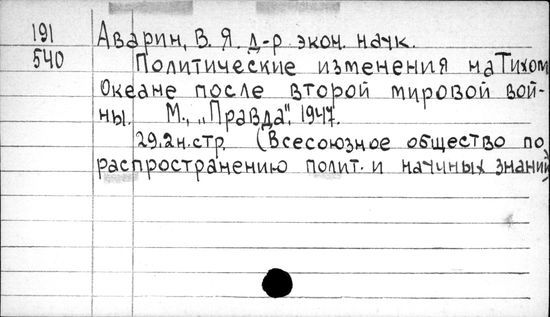 191 Аварин, В. Я. д-р экон. наук.
540 Политические изменения на Тихом
Океане после второй мировой вой-
ны. М., „Правда", 1947.
29.2н.стр. (Всесоюзное общество по
распространению полит. и научных знаний)